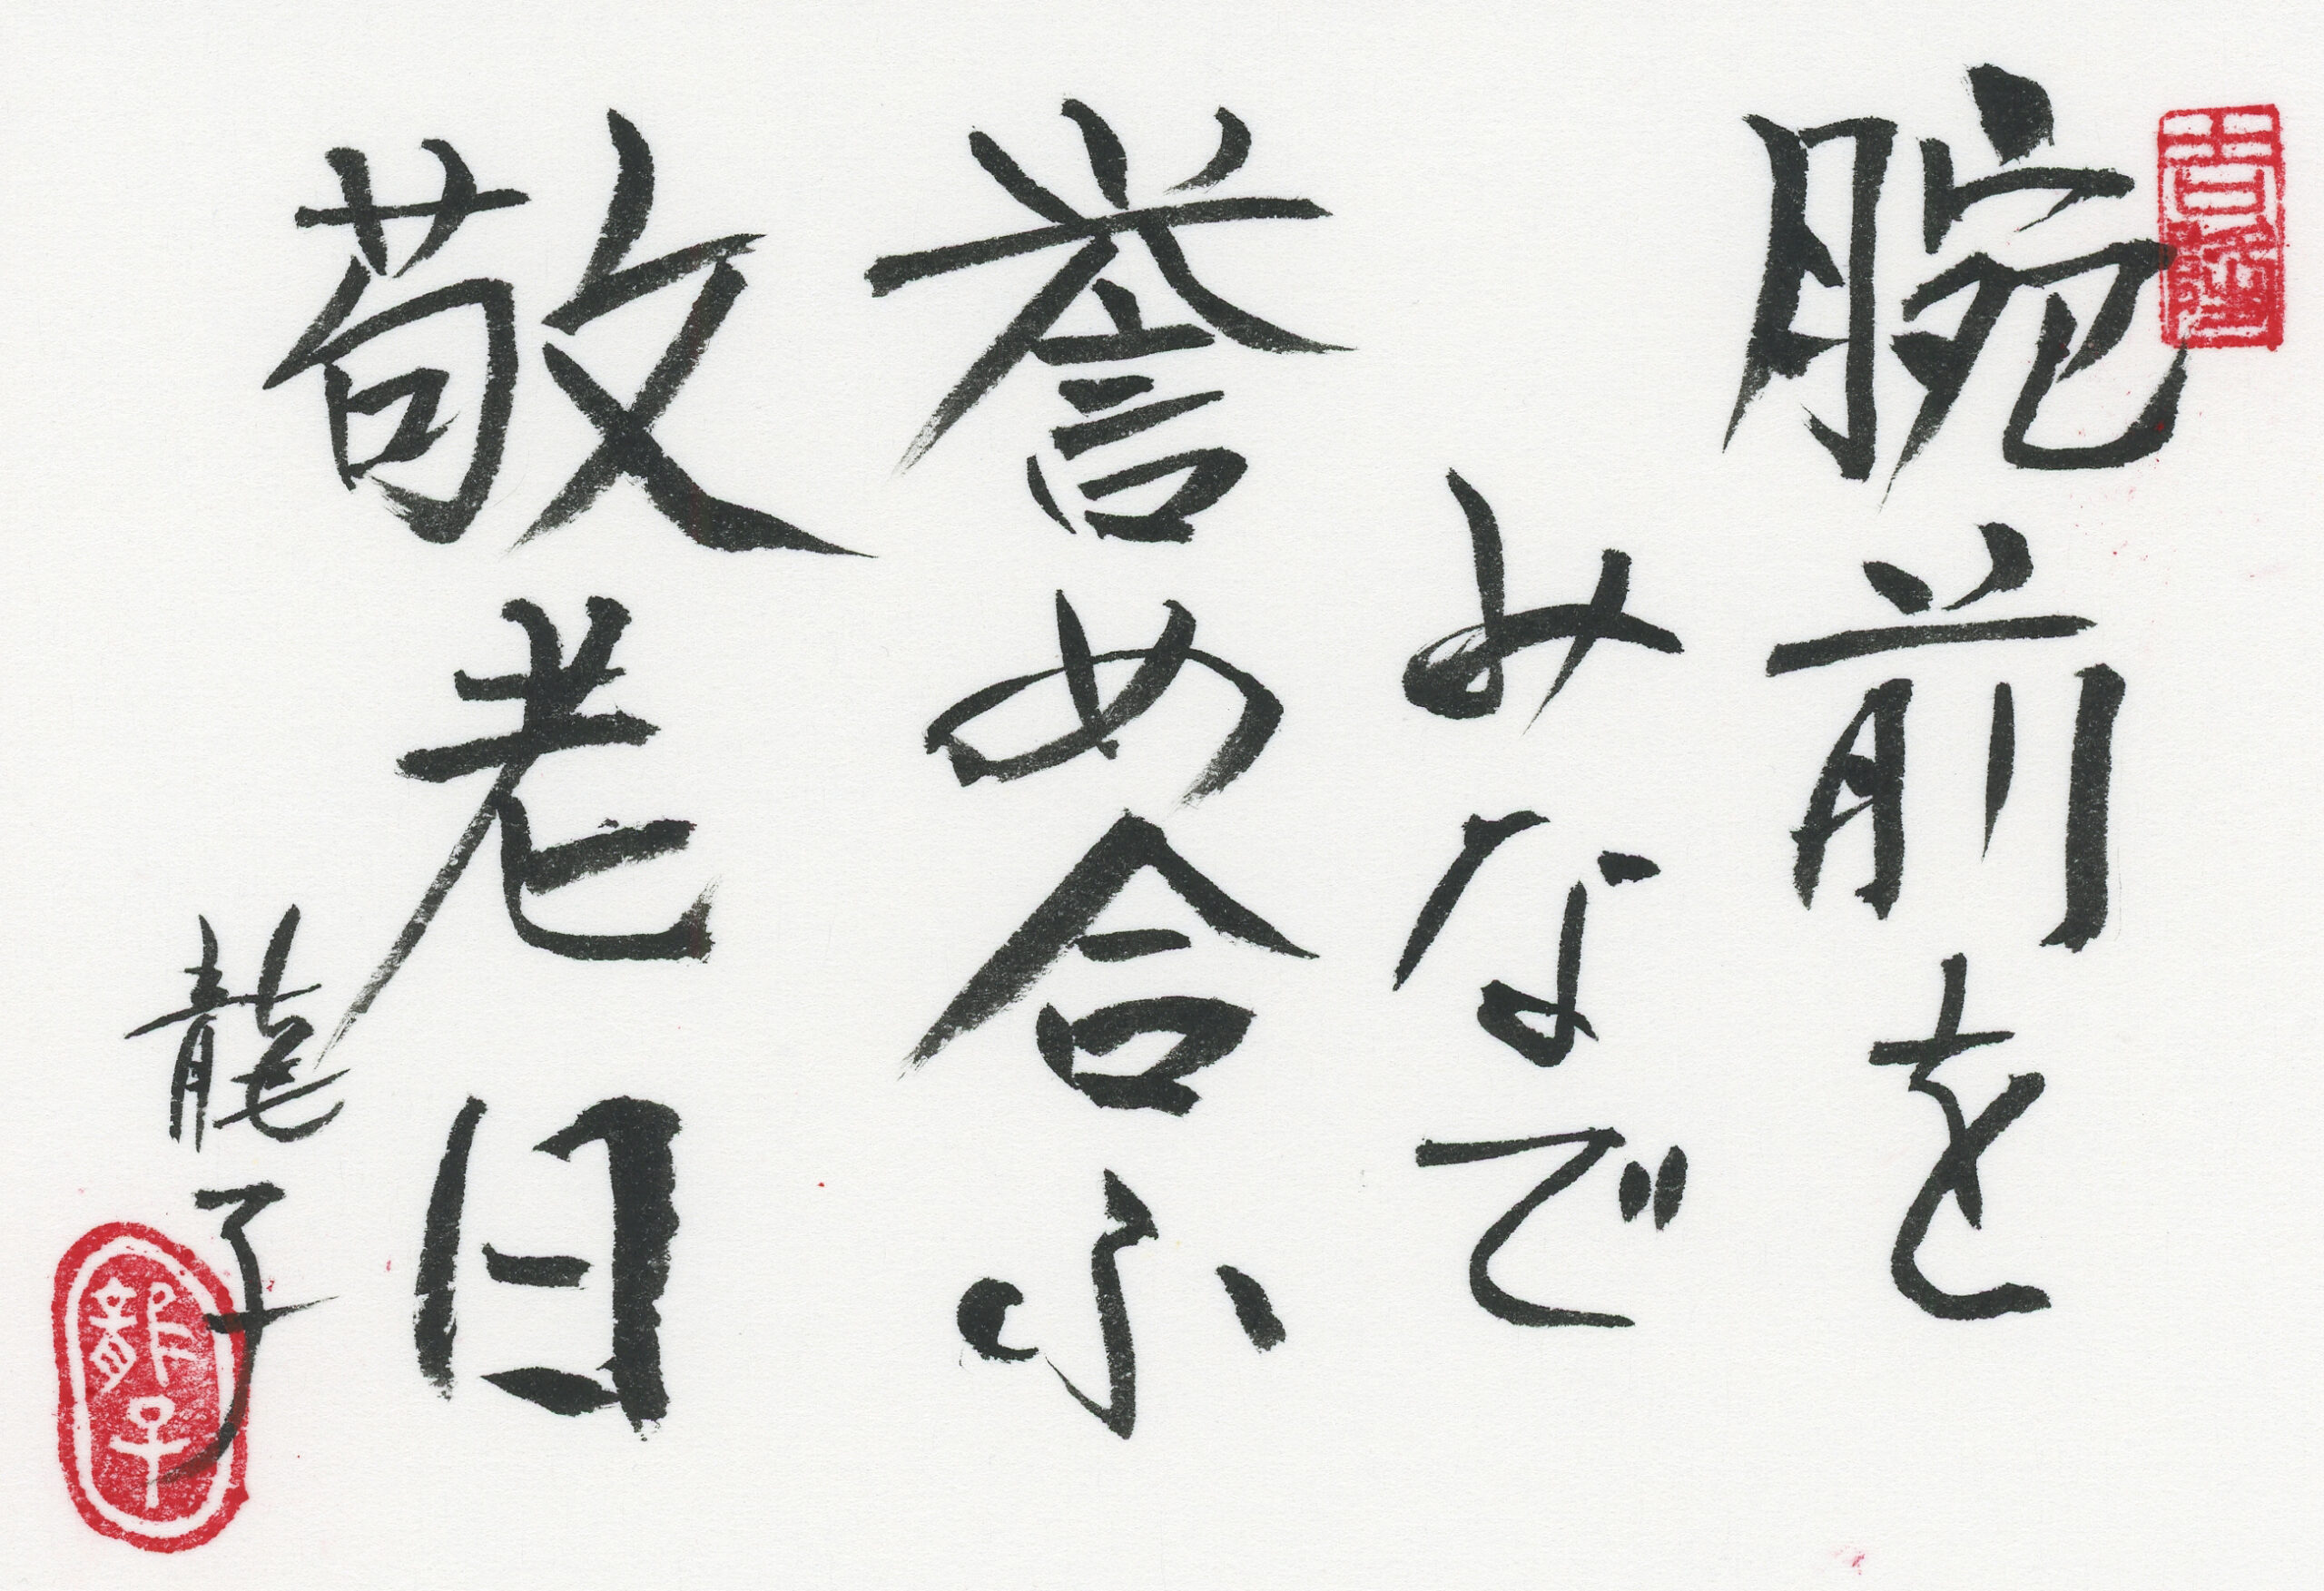 腕前を
みなで
誉め合ふ
敬老日
龍子